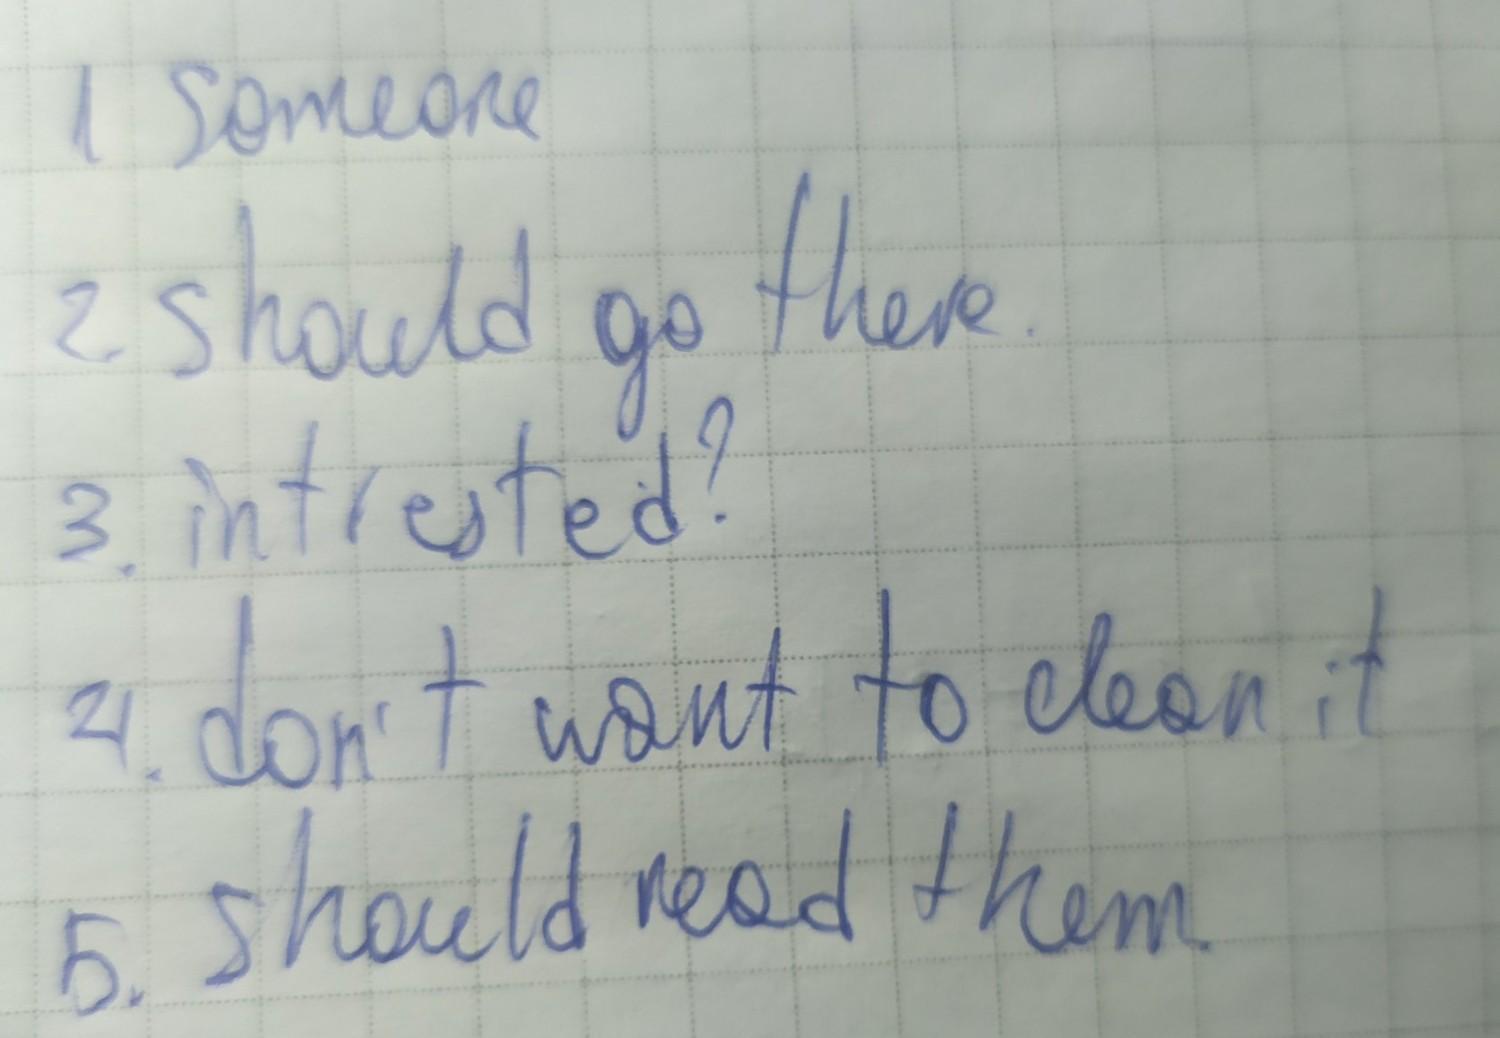 1 someone
2. should go there.
3. intrested?
4. don't want to clean it
5. should read them.